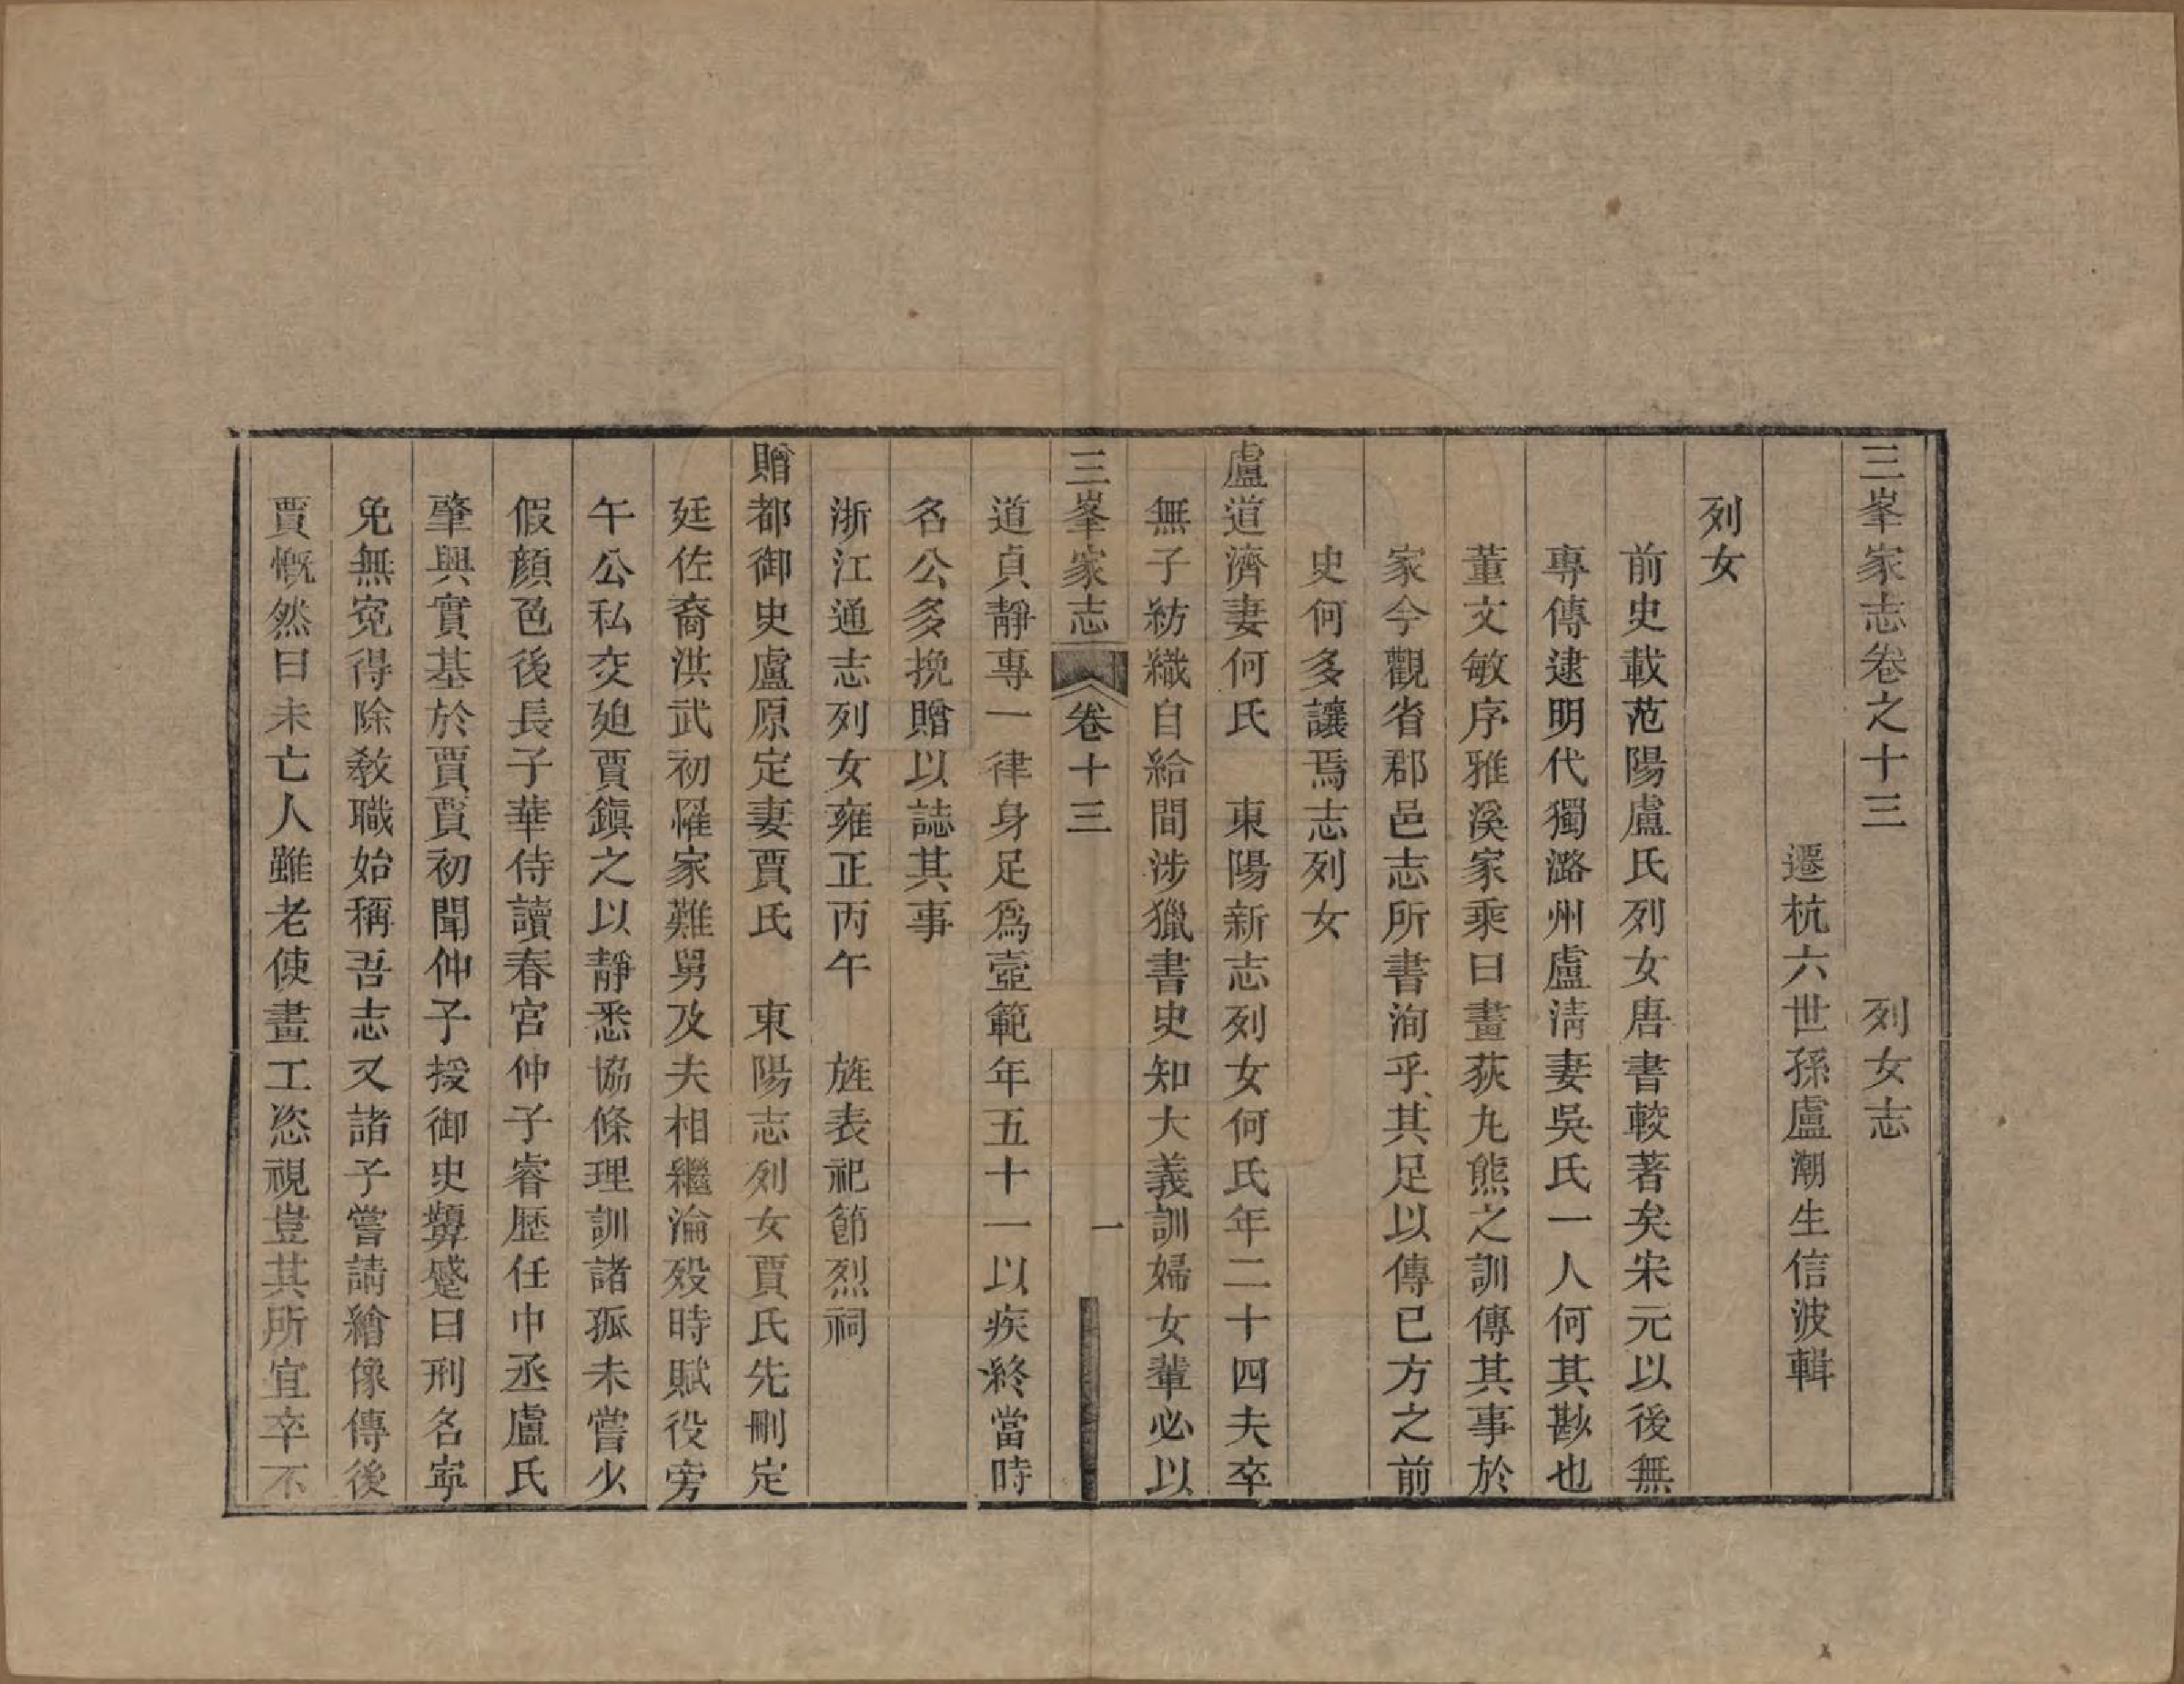 三峯家志卷之十三　　　列女志
遷杭六世孫盧潮生信波輯
列女
前史載范陽盧氏列女唐書較著矣宋元以後無
專傳逮明代獨潞州盧清妻吳氏一人何其尠也
董文敏序雅溪家乘曰畫荻丸熊之訓傳其事於
家今觀省郡邑志所書洵乎其足以傳已方之前
史何多讓焉志列女
盧道濟妻何氏　東陽新志列女何氏年二十四夫卒
無子紡織自給間涉獵書史知大義訓婦女輩必以
三峯家志　卷十三　一
道貞靜專一律身足爲壼範年五十一以疾終當時
名公多挽贈以誌其事
浙江通志列女雍正丙午　旌表祀節烈祠
贈都御史盧原定妻賈氏　東陽志列女賈氏先刪定
廷佐裔洪武初罹家難舅及夫相繼淪歿時賦役旁
午公私交廹賈鎭之以靜悉協條理訓諸孤未嘗少
假顏色後長子華侍讀春宮仲子睿歷任中丞盧氏
肇興實基於賈賈初聞仲子授御史顰蹙曰刑名寧
免無寃得除敎職始稱吾志又諸子嘗請繪像傳後
賈慨然曰未亡人雖老使畫工恣視豈其所宜卒不